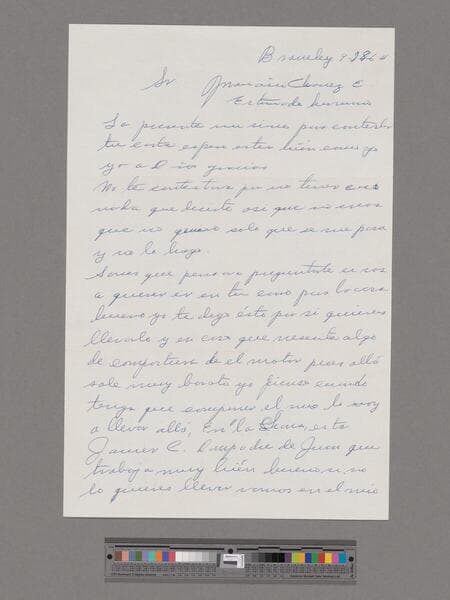 Brawley 9-28-64
Sr
Estimado hermano
La presente me sirve para contestar
tu carta espero estes bién como yo
yo a D. ias gracias
No te contestava por no tener
nada que decirte asi que no creas
que no quiero solo que se me pasa
y no lo hago.
preguntarte si vas
a querer ir en tu carro para la casa
bueno yo te digo ésto por si quieres
llevarlo y en caso que necesite algo
de compostura de el motor pues allá
sale muy barato yo pienso cuando
tenga que componer el mio lo voy
a llevar allá, En la esta
Javier C. Compadre de Juan que
trabaja muy bién bueno si no
lo quieres llevar vamos en el mio